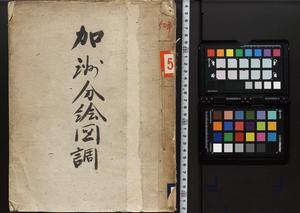 加州分絵図調
5